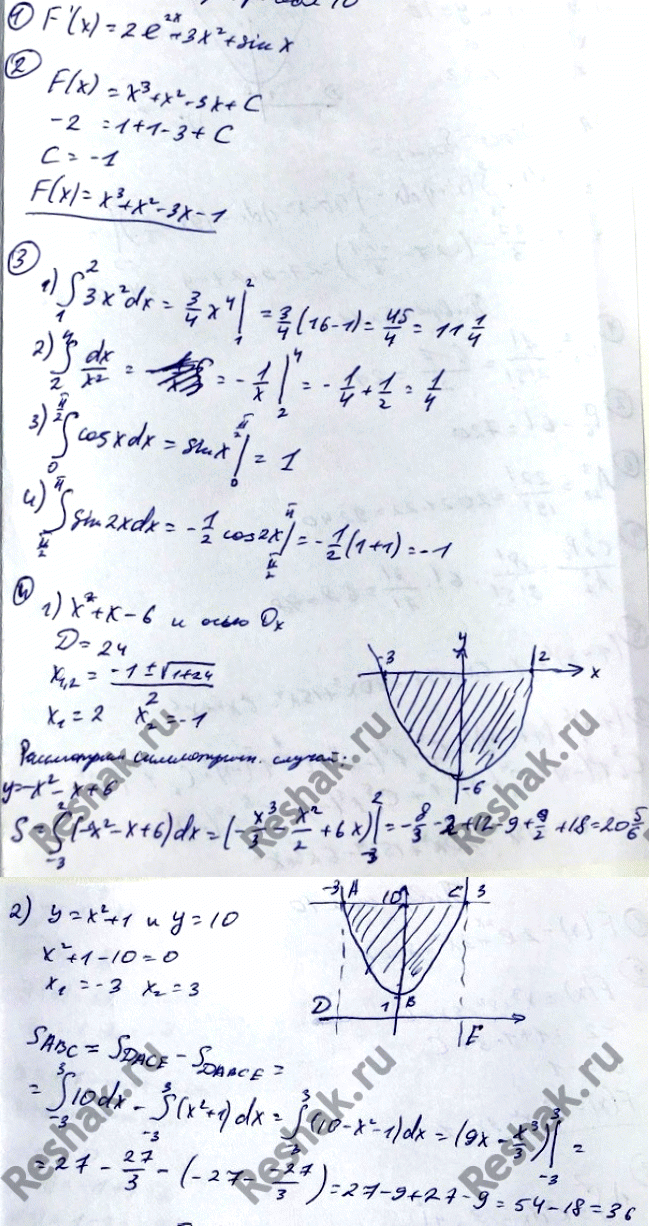 ① F'(x) = 2e^2x + 3x² + sin x
②
F(x) = x³ + x² - 3x + C
-2 = 1 + 1 - 3 + C
C = -1
F(x) = x³ + x² - 3x - 1
③
1) ∫₁² 3x² dx = 3/4 x⁴ |₁² = 3/4 (16 - 1) = 45/4 = 11 1/4
2) ∫₂⁴ dx/x² = = - 1/x |₂⁴ = - 1/4 + 1/2 = 1/4
3) ∫₀^π/2 cos x dx = sin x |₀^π/2 = 1
4) ∫_π/2^π sin 2x dx = - 1/2 cos 2x |_π/2^π = - 1/2 (1 + 1) = -1
④
1) x² + x - 6 и осью Ox
D = 24
x₁,₂ = (-1 ± √(1+24))/2
x₁ = 2 x₂ = -1
y
-3 2 x
-6
Рассмотрим симметричн. случай:
y = -x² - x + 6
S = ∫₋₃² (-x² - x + 6) dx = (- x³/3 - x²/2 + 6x) |₋₃² = - 8/3 - 2 + 12 - 9 + 9/2 + 18 = 20 5/6
2) y = x² + 1 и y = 10
x² + 1 - 10 = 0
x₁ = -3 x₂ = 3
-3 A 10 C 3
1 B
D E
S_ABC = S_DACE - S_DABCE =
= ∫₋₃³ 10 dx - ∫₋₃³ (x² + 1) dx = ∫₋₃³ (10 - x² - 1) dx = (9x - x³/3) |₋₃³ =
= 27 - 27/3 - (-27 - -27/3) = 27 - 9 + 27 - 9 = 54 - 18 = 36
Reshak.ru
Reshak.ru
Reshak.ru
Reshak.ru
Reshak.ru
Reshak.ru